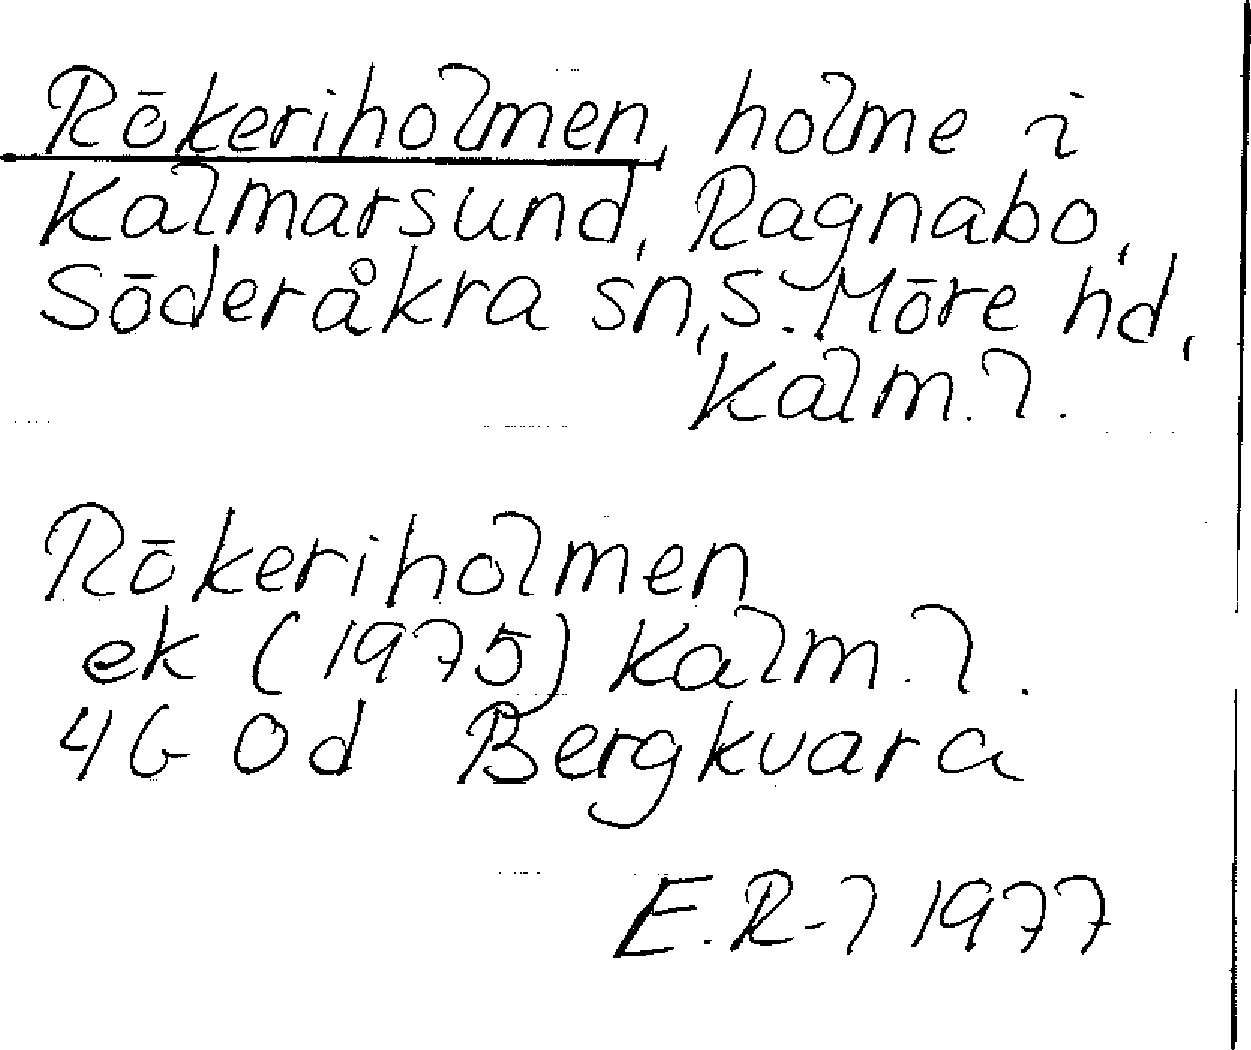 Rökeriholmen, holme i
Kalmarsund, Ragnabo,
Söderåkra sn, S. Möre hd,
Kalm. l.
Rökeriholmen
ek (1975) Kalm. l.
4G 0d Bergkvara
E. R-l 1977